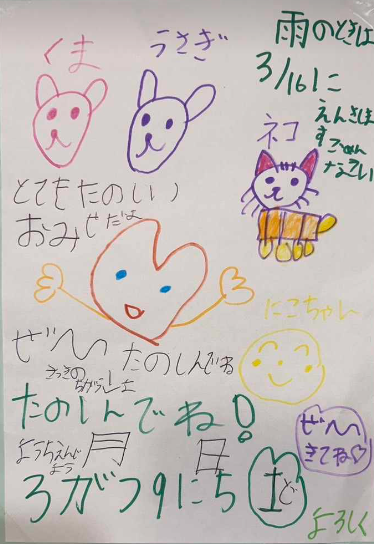 くま
うさぎ
雨のときは
3/16に
えんきします
ごめん
なさい
ネコ
とてもたのしい
おみせだよ
にこちゃん
ぜひ
たのしんでね
たのしんでね!
ようちえんじ
よう
月
日
3がつ9にち
土ど
ぜひ
きてね♡
よろしく